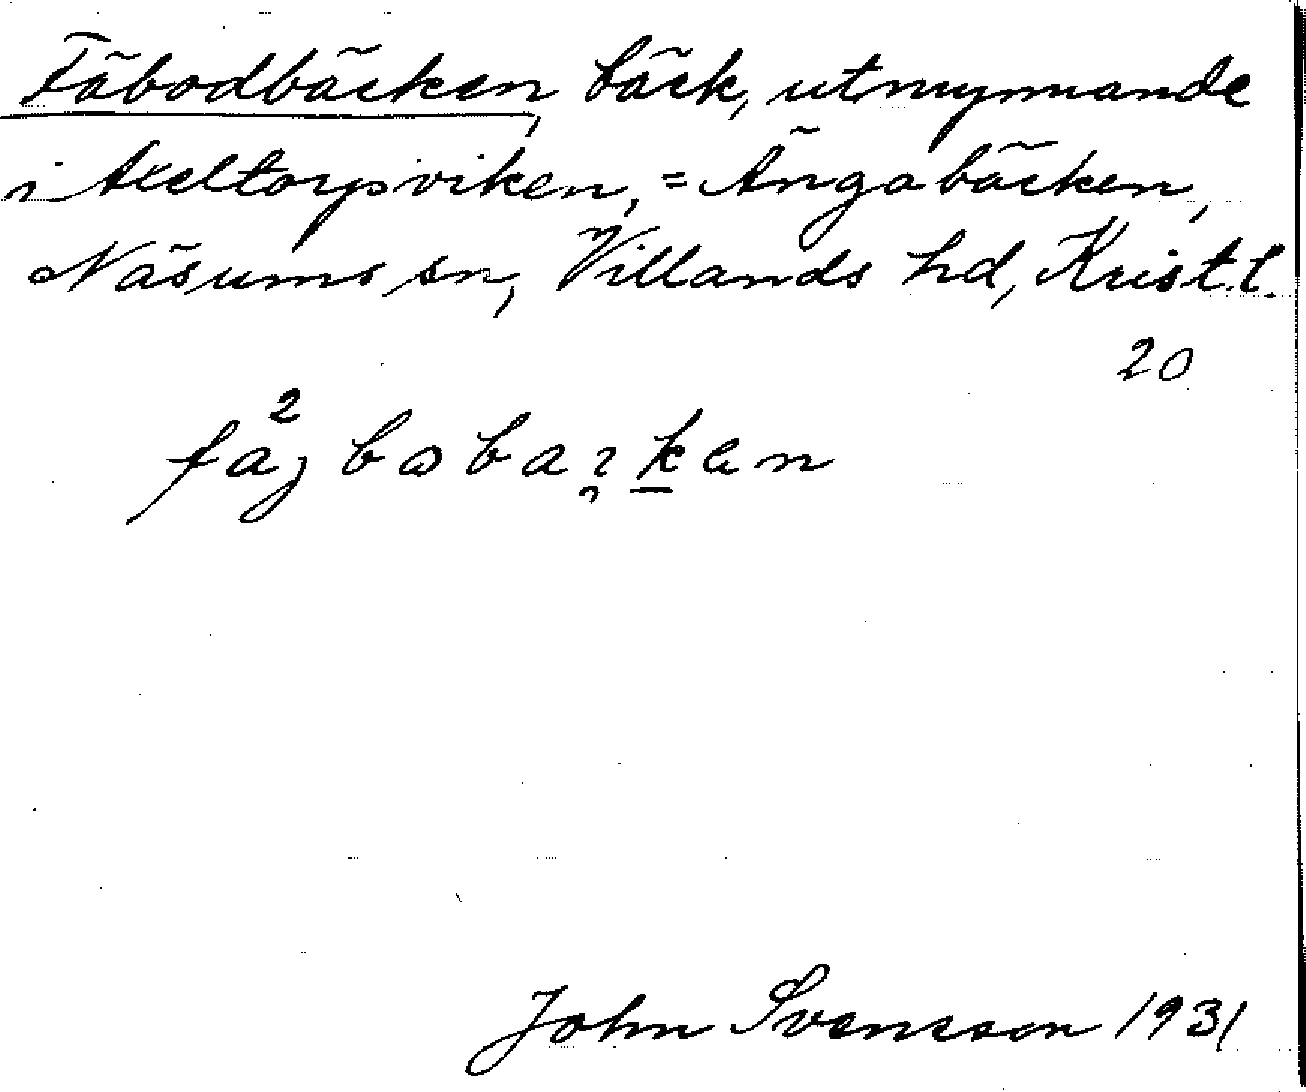 Fäbodbäcken, bäck, utmynnande
i Axeltorpsviken, = Ängabäcken,
Näsums sn, Villands hd, Krist. l.
20
John Svensson 1931